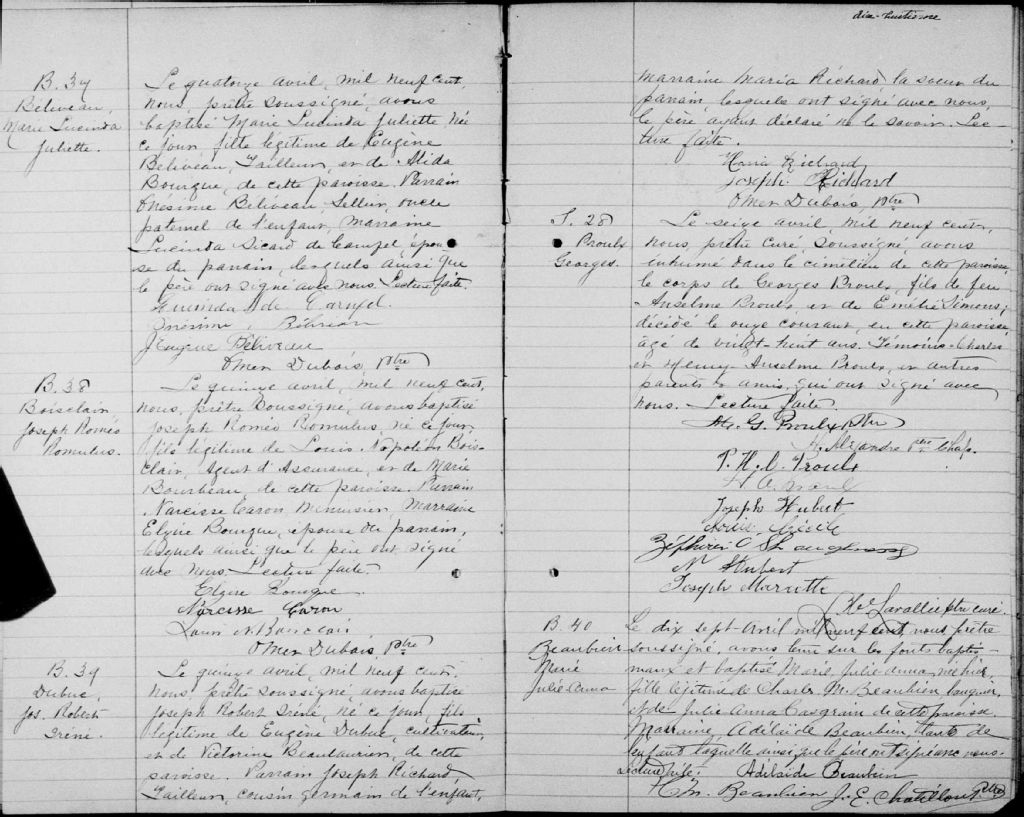 B. 37
Béliveau,
Marie Lucinda
Juliette.
Le quatorze avril, mil neuf cent,
nous, prêtre soussigné, avons
baptisé Marie Lucinda Juliette, née
ce jour, fille légitime de Eugène
Béliveau, Tailleur, et de Alida
Bourque, de cette paroisse. Parrain
Onésime Béliveau, Sellier, oncle
paternel de l'enfant, marraine
Lucinda Sicard de Carufel, épou-
se du parrain, lesquels ainsi que
le père ont signé avec nous. Lecture faite.
de Carufel
Onésime Béliveau
J Eugène Béliveau
Omer Dubois, Ptre
B. 38
Boisclair,
Joseph Roméo
Romulus.
Le quinze avril, mil neuf cent,
nous, prêtre soussigné, avons baptisé
Joseph Roméo Romulus, né ce jour,
fils légitime de Louis Napoléon Bois-
clair, Agent d'Assurance, et de Marie
Bourbeau, de cette paroisse. Parrain
Narcisse Caron, Menuisier, Marraine
Elzire Bourque, épouse du parrain,
lesquels ainsi que le père ont signé
avec nous. Lecture faite.
Elzire Bourque
Narcisse Caron
Louis N. Boisclair
Omer Dubois, Ptre
B. 39
Dubuc,
Jos. Robert
Iréné.
Le quinze avril, mil neuf cent,
nous prêtre soussigné avons baptisé
Joseph Robert Iréné, né ce jour, fils
légitime de Eugène Dubuc, cultivateur,
et de Victorine Beaulaurier, de cette
paroisse. Parrain Joseph Richard,
Tailleur, cousin germain de l'enfant,
dix-huitième
marraine Maria Richard, la soeur du
parrain, lesquels ont signé avec nous,
le père ayant déclaré ne le savoir. Lec-
ture faite.
Maria Richard
Joseph Richard
Omer Dubois, Ptre
S. 28
Proulx
Georges.
Le seize avril, mil neuf cent,
nous, prêtre curé, soussigné avons
inhumé dans le cimetière de cette paroisse,
le corps de Georges Proulx, fils de feu
Anselme Proulx, et de Emélie Simons,
décédé le onze courant, en cette paroisse,
âgé de vingt-huit ans. Témoins- Charles
et Henry- Anselme Proulx, et autres
parents & amis, qui ont signé avec
nous. - Lecture faite
G. Proulx Ptre
H. Alexandre Ptre Chap.
P. H. O. Proulx
Joseph Hubert
Louis
Zéphirin O'Shaughnessy
N. Hubert
Joseph Marcotte
Lavallée Ptre curé.
B. 40
Beaubien
Marie
Julie Anna
Le dix sept Avril mil neuf cent, nous prêtre
soussigné, avons tenu sur les fonts baptis-
maux et baptisé Marie Julie Anna, née hier,
fille légitime de Charles M. Beaubien, banquier,
et de Julie Anna Casgrain de cette paroisse.
Marraine, Adélaïde Beaubien, tante de
l'enfant laquelle ainsi que le père ont signé avec nous.
Lecture faite. Adélaide Beaubien
Beaubien J. E. Chatillon Ptre